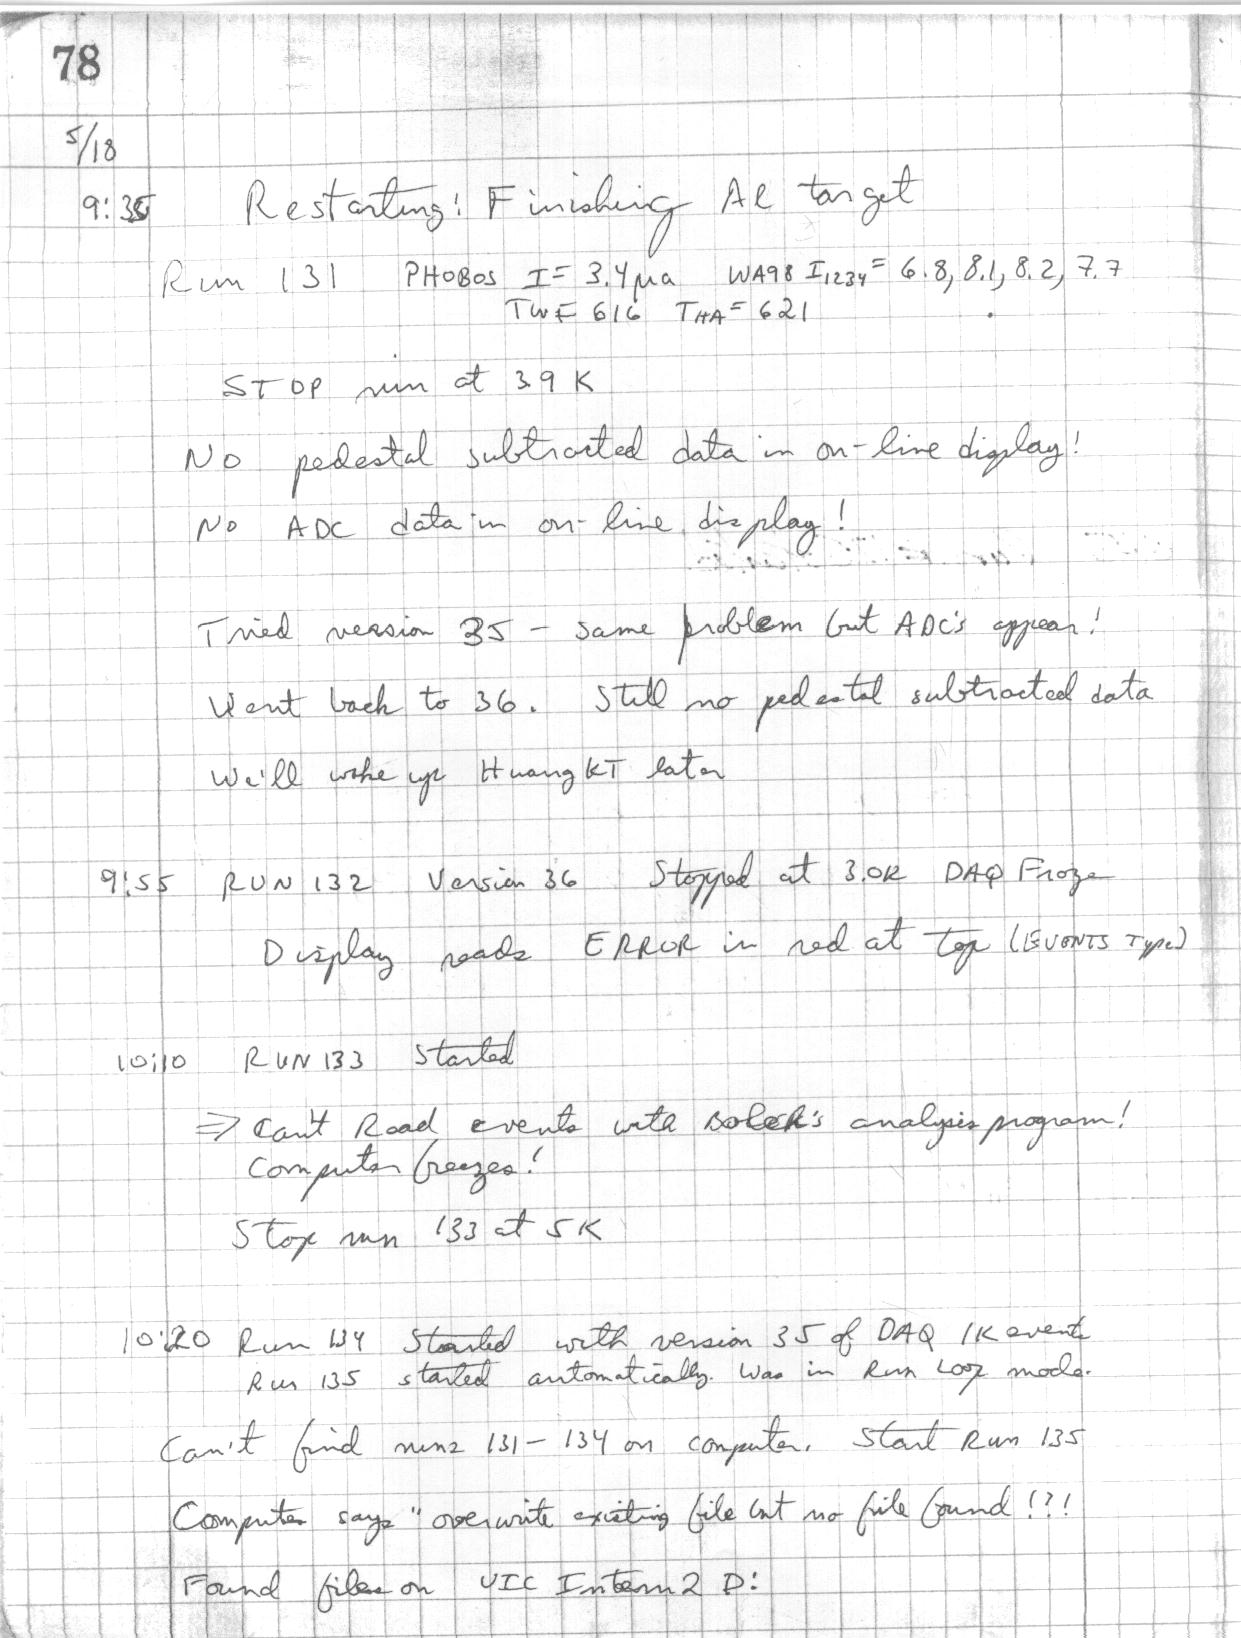 78
5/18
9:35 Restarting! Finishing Al target
Run 131 PHOBOS I = 3.4 μa WA98 I1234 = 6.8, 8.1, 8.2, 7.7
TW = 616 THA = 621
STOP run at 3.9 K
No pedestal subtracted data in on-line display!
No ADC data in on-line display!
Tried version 35 - same problem but ADC's appear!
Went back to 36. Still no pedestal subtracted data
We'll wake up Huang KT later
9:55 RUN 132 Version 36 Stopped at 3.0K DAQ Froze
Display reads ERROR in red at top (EVENTS Type)
10:10 RUN 133 Started
⇒ Can't Read events with analysis program!
Computer freezes!
Stop run 133 at 5K
10:20 Run 134 Started with version 35 of DAQ 1K events
Run 135 started automatically. Was in Run Loop mode.
Can't find runs 131-134 on computer. Start Run 135
Computer says "overwrite existing file but no file found!?!
Found files on UIC Intern2 D: